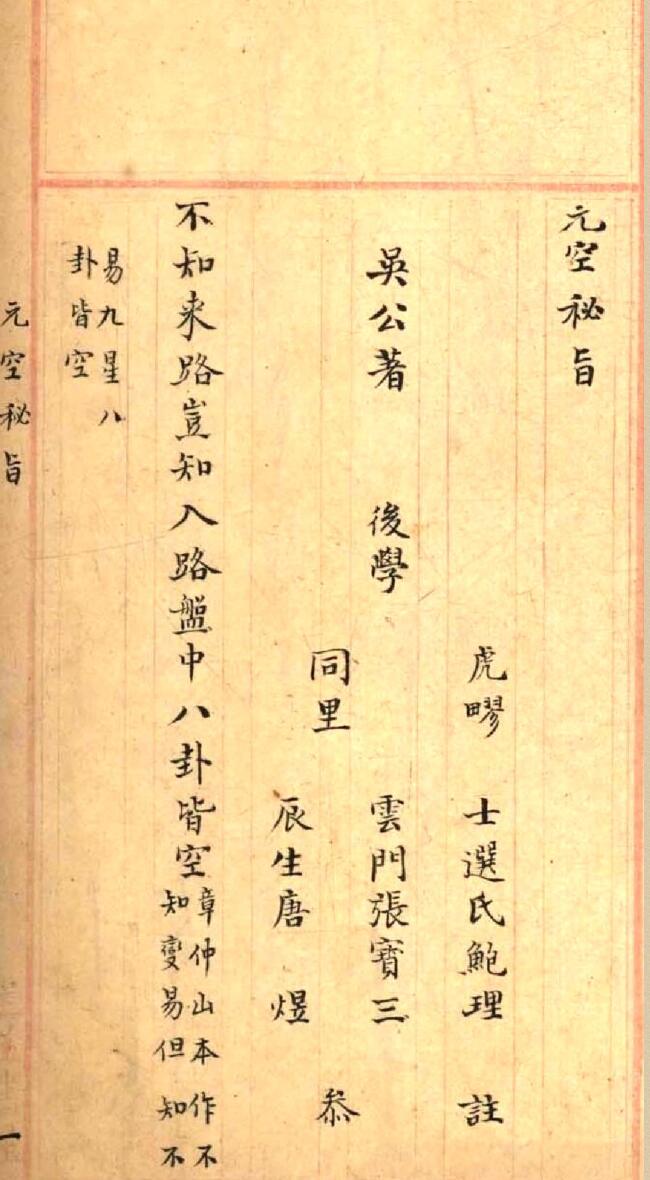 元空秘旨
虎疁 士選氏鮑理 註
吳公著 後學 雲門張寶三
同里 叅
辰生唐煜
不知来路豈知入路盤中八卦皆空
章仲山本作不
知變易但知不
易九星八
卦皆空
元空秘旨 一